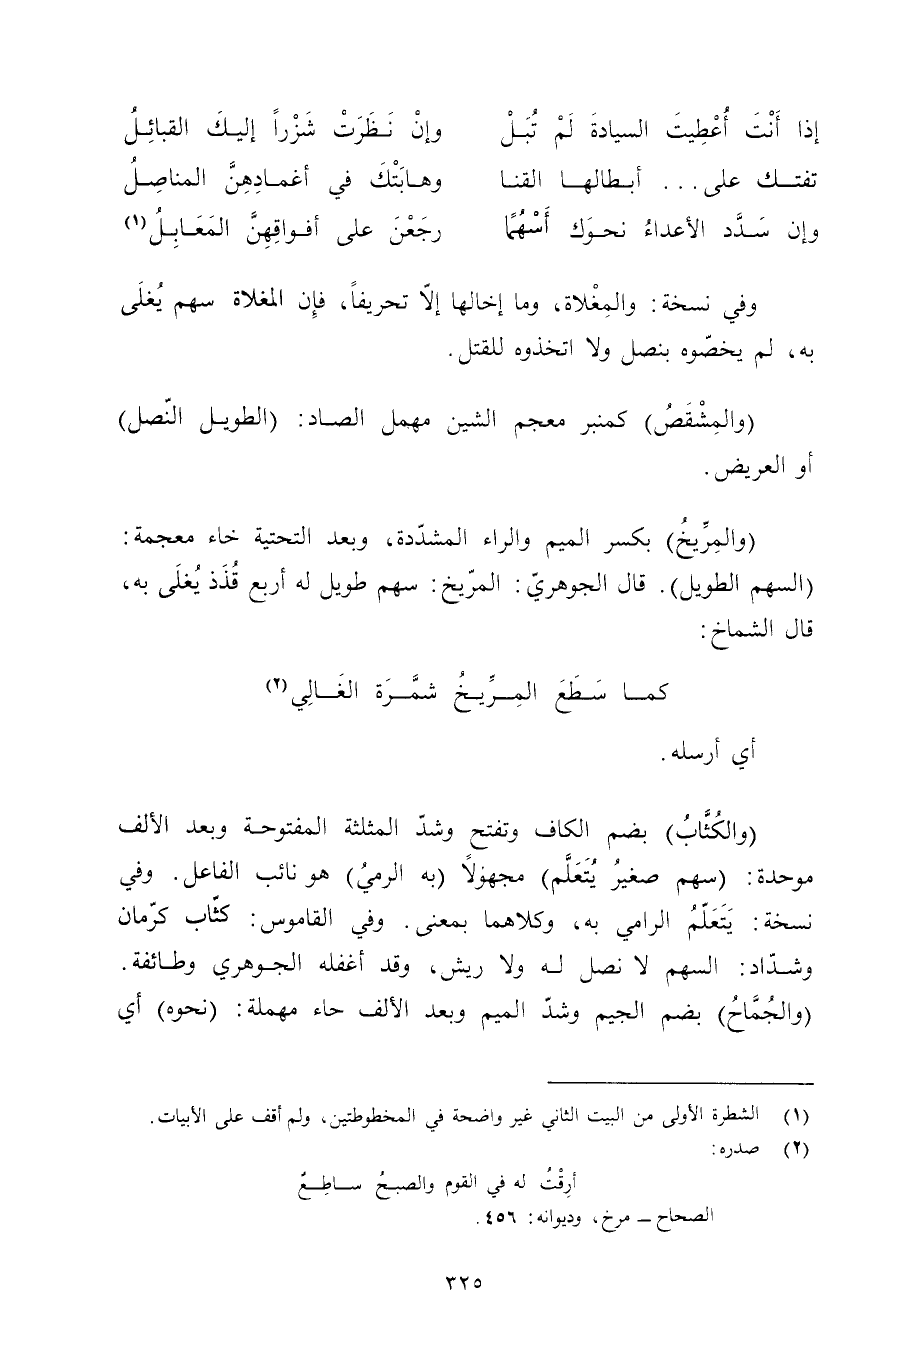 إذا أَنْتَ أُعْطِيتَ السيادةَ لَمْ تُبَلْ وإنْ نَـظَرَتْ شَزْراً إليـكَ القبائِـلُ
تفتــك على... أبـطالهـا القنـا وهـابَتْكَ في أغمـادِهِنَّ المناصِـلُ
وإن سَـدَّد الأعداءُ نحـوَك أَسْهُمًا رجَعْنَ على أفـواقِهِنَّ المَعَـابِـلُ(١)
وفي نسخة: والمِغْلاة، وما إخالها إلّا تحريفاً، فإن المغلاة سهم يُغلَى
به، لم يخصّوه بنصل ولا اتخذوه للقتل.
(والمِشْقَصُ) كمنبر معجم الشين مهمل الصـاد: (الطويـل النّصل)
أو العريض.
(والمِرِّيخُ) بكسر الميم والراء المشدّدة، وبعد التحتية خاء معجمة:
(السهم الطويل). قال الجوهريّ: المرّيخ: سهم طويل له أربع قُذَذ يُغلَى به،
قال الشماخ:
كمــا سَـطَعَ المِــرِّيـخُ شمَّــرَة الغَــالِي(٢)
أي أرسله.
(والكُثَّابُ) بضم الكاف وتفتح وشدّ المثلثة المفتوحـة وبعد الألف
موحدة: (سهم صغيرُ يُتَعَلَّم) مجهولاً (به الرميُ) هو نائب الفاعل. وفي
نسخة: يَتَعَلّمُ الرامي به، وكلاهما بمعنى. وفي القاموس: كثّاب كرّمان
وشـدّاد: السهم لا نصل لـه ولا ريش، وقد أغفله الجـوهري وطـائفة.
(والجُمَّاحُ) بضم الجيم وشدّ الميم وبعد الألف حاء مهملة: (نحوه) أي
(١) الشطرة الأولى من البيت الثاني غير واضحة في المخطوطتين، ولم أقف على الأبيات.
(٢) صدره:
أرِقْتُ له في القوم والصبـحُ ســاطِــعٌ
الصحاح ـ مرخ، وديوانه: ٤٥٦.
٣٢٥